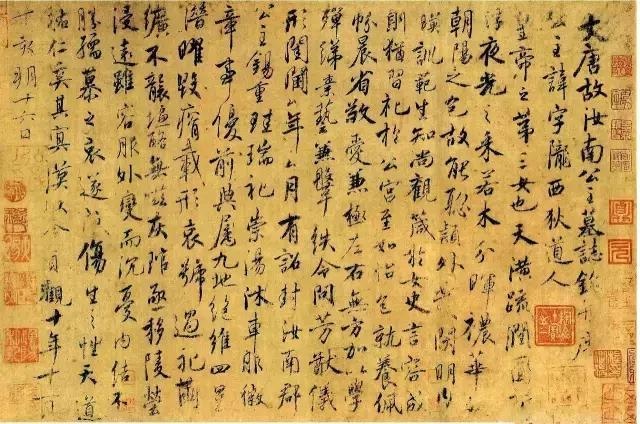 大唐故汝南公主墓誌銘并序
公主諱字隴西狄道人
皇帝之第三女也天潢疏潤圓折
浮夜光之采若木分暉穠華照
朝陽之色故能聡穎外發閑明内
暎訓範生知尚觀箴於女史言容成
則猶習礼於公宮至如怡色就養佩
帉晨省敬愛兼極左右無方加以學
殫綈素藝兼鞶紩令問芳猷儀
形閨閫厶年厶月有詔封汝南郡
公主錫重珪瑞礼崇湯沐車服徽
章事優前典属九地絕維四星
潛曜毀瘠載形哀號過礼繭
纊不襲塩酪無嗞灰琯亟移陵塋
浸遠雖容服外變而沉憂内結不
勝孺慕之哀遂成傷生之性天道
祐仁奚其冥漠以今貞觀十年十一
朔十六日